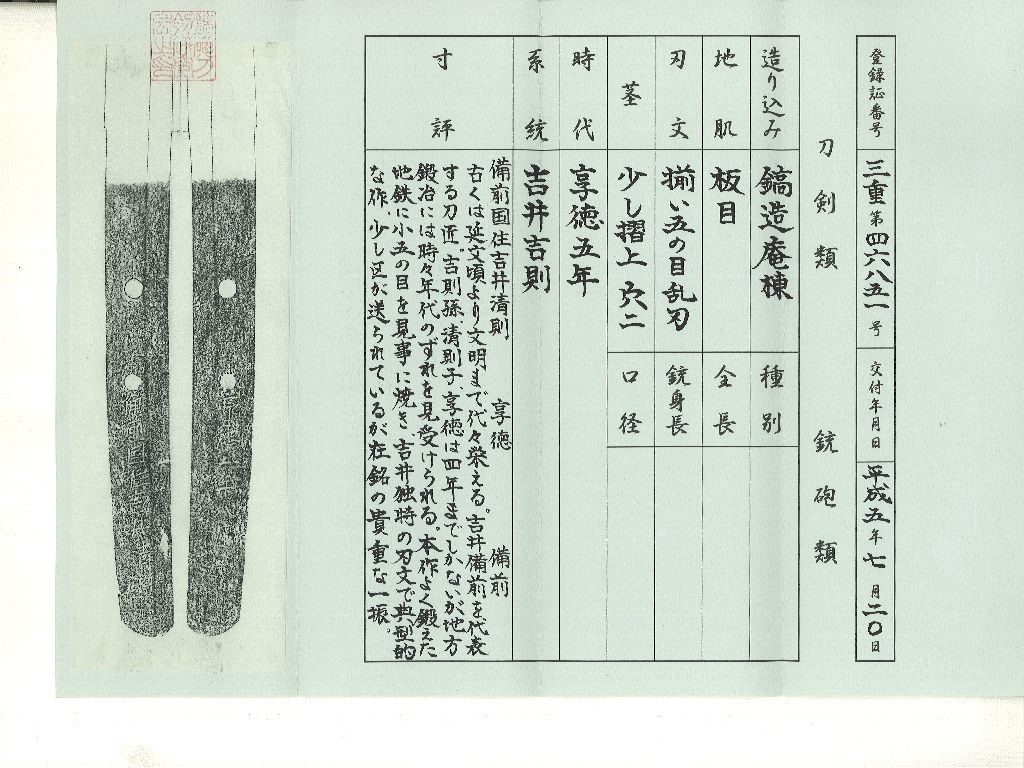 登録証番号 三重第四六八五一号 交付年月日 平成五年七月二〇日
刀剣類 銃砲類
造り込み 鎬造庵棟 種別
地肌 板目 全長
刃文 揃い五の目乱刃 銃身長
茎 少し摺上 穴二 口径
時代 享徳五年
系統 吉井吉則
寸評 備前国住吉井清則 享徳 備前
古くは延文頃より文明まで代々栄える。吉井備前を代表
する刀匠。吉則孫 清則子、享徳は四年までしかないが地方
鍛冶には時々年代のずれを見受けられる。本作よく鍛えた
地鉄に小五の目を見事に焼き 吉井独時の刃文で典型的
な作、少し区が送られているが在銘の貴重な一振。